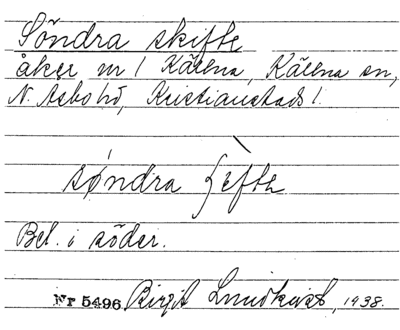 Söndra skifte
åker nr 1 Källna, Källna sn,
N. Åsbo hd, Kristianstads l.
søndra ʃèfte
Bel. i söder.
Nr 5496 Birgit Lundkvist, 1938.